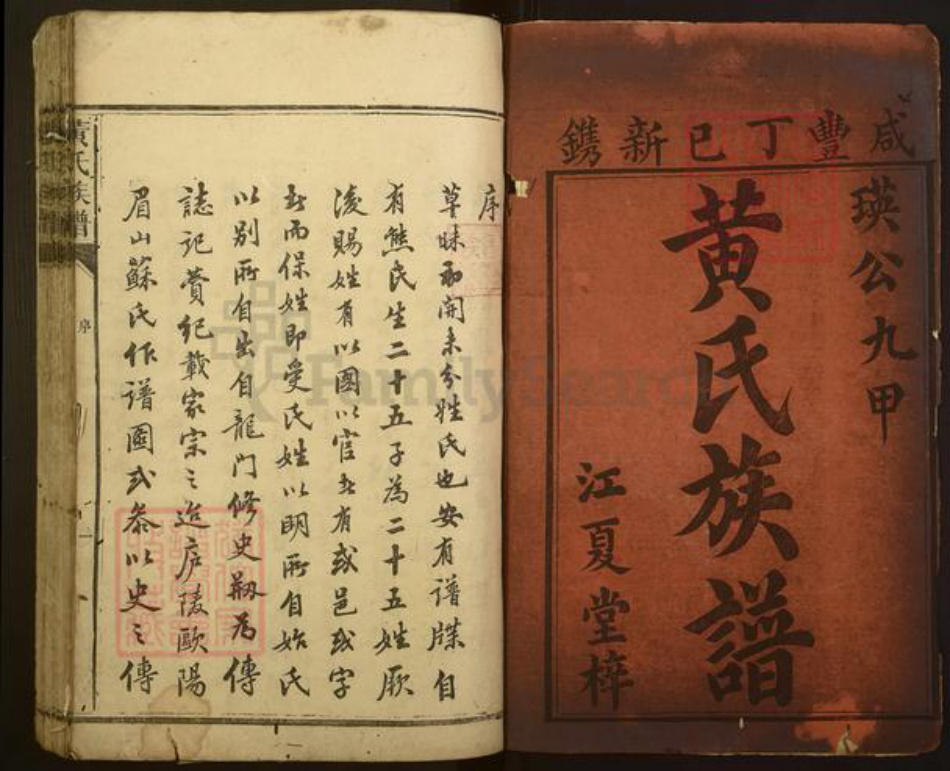 咸豐丁巳新鐫
瑛公九甲
黃氏族譜
江夏堂梓
序
草昧初開未分姓氏也安有譜牒自
有熊氏生二十五子為二十五姓厥
後賜姓有以國以官者有或邑或字
者而保姓即受氏姓以明所自始氏
以別所自出自龍門修史剏為傳
誌記贊紀載家宗之迨庐陵歐陽
眉山蘇氏作譜圖式叅以史之傳
黃氏族譜
序
FamilySearch